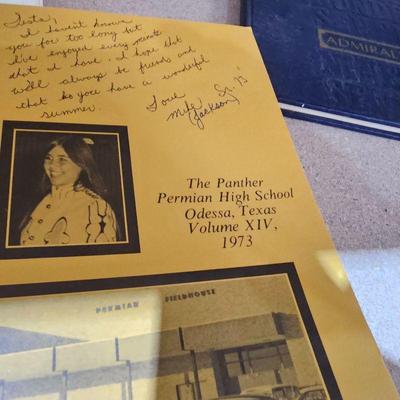 I haven't known
you for too long but
I've enjoyed every minute
that I have. I hope that
we'll always be friends and
that you have a wonderful
summer.
Love
Mike Sr. 73
(Jackson)
ADMIRAL
The Panther
Permian High School
Odessa, Texas
Volume XIV,
1973
PERMIAN FIELDHOUSE